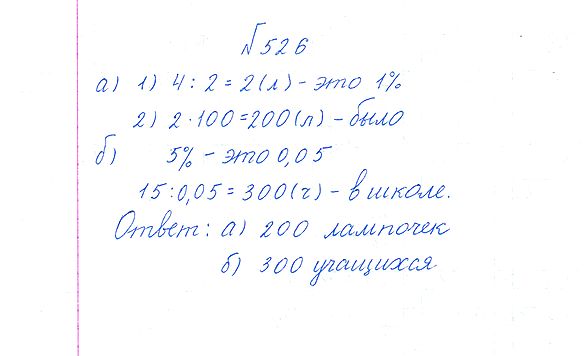 № 526
а) 1) 4 : 2 = 2 (л) - это 1%
2) 2 · 100 = 200 (л) - было
б) 5% - это 0,05
15 : 0,05 = 300 (ч) - в школе.
Ответ: а) 200 лампочек
б) 300 учащихся